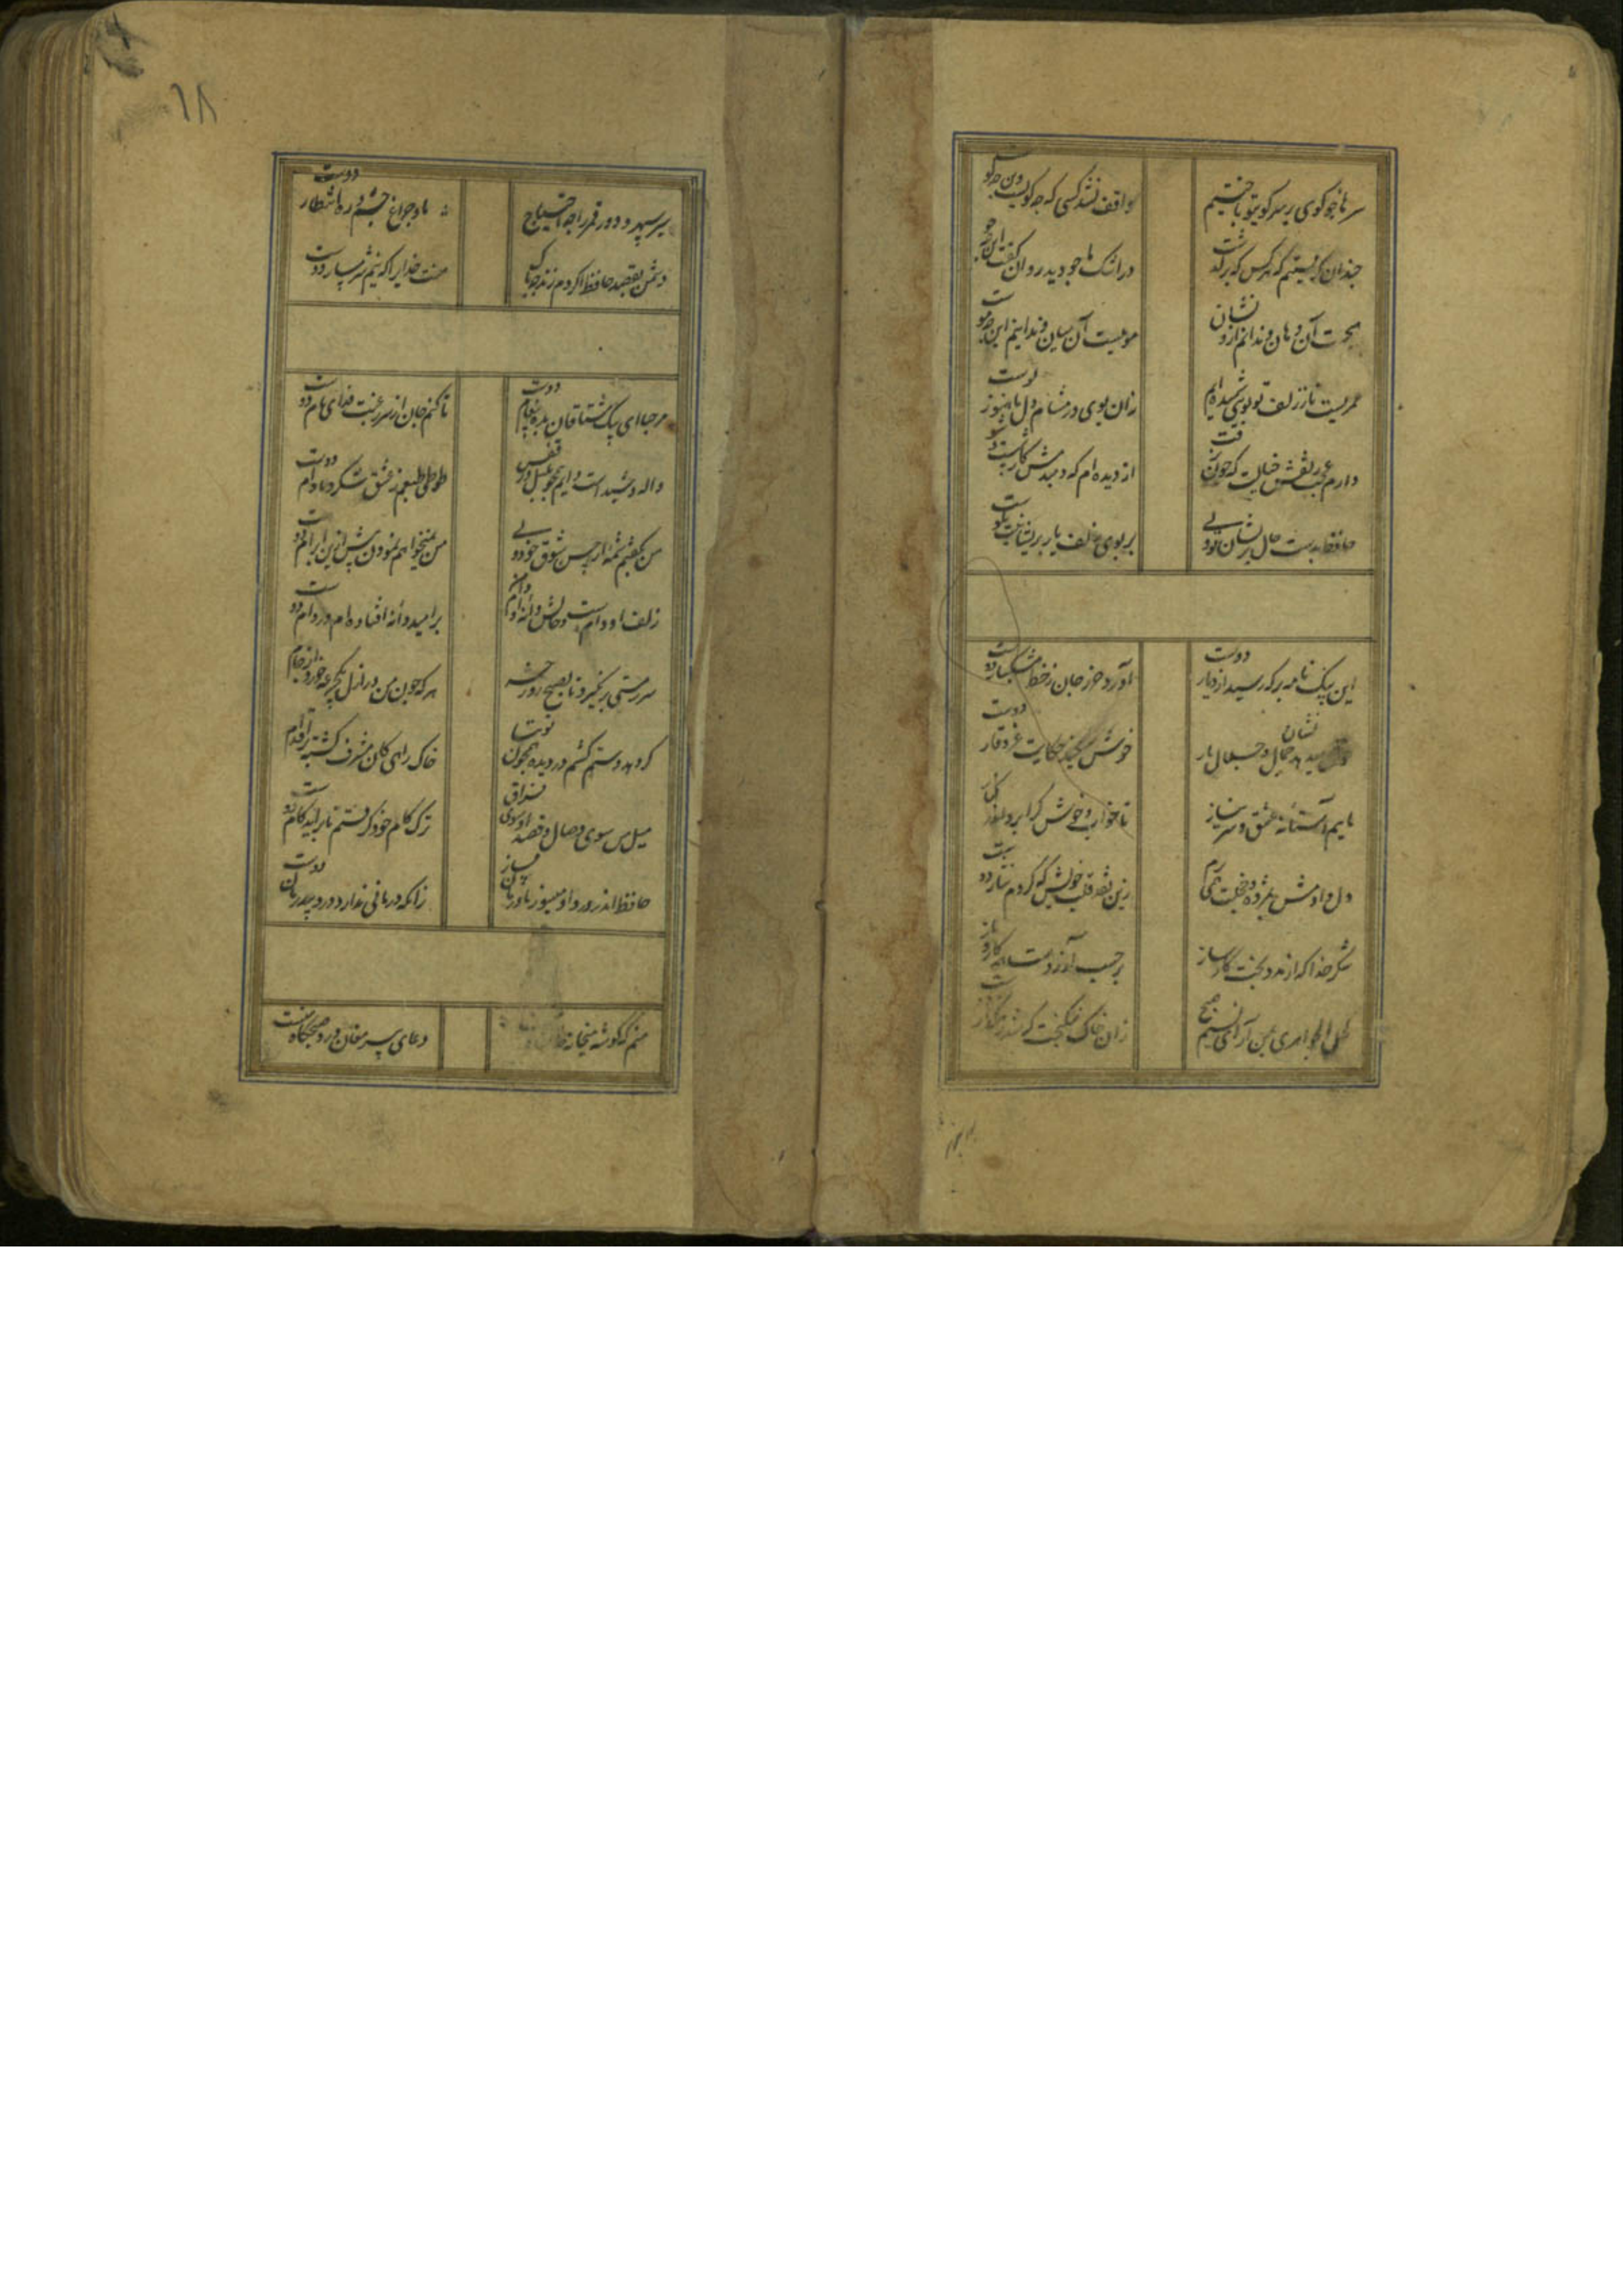 سرها چو گوی بر سر کوی تو باختیم
واقف نشد کسی که چه گویست و این چه گو
چندان گریستیم که هر کس که برگذشت
در اشک ما چو دید روان گفت این چه جو
هیچست آن دهان و ندانم ازو نشان
مویست آن میان و ندانم این چه موست
عمریست تا ز زلف تو بویی شنیده‌ام
زان بوی در مشام دل ما هنوز بوست
دارم عجب ز نقش خیالت که چون نرفت
از دیده‌ام که دمبدمش کار شست و شو
حافظ بدست حال پریشان تو ولی
بر بوی زلف یار پریشانیت نکوست
این پیک نامه‌بر که رسید از دیار دوست
آورد حرز جان ز خط مشکبار دوست
میدهد جمال و جلال یار نشان
خوش میکند حکایت عز و وقار دوست
ماییم و آستانه عشق و سر نیاز
تا خواب خوش کرا برد اندر کنار
دل دادمش بمژده و خجلت همی برم
زین نقد قلب خویش که کردم نثار دوست
شکر خدا که از مدد بخت کارساز
بر حسب آرزوست کار و بار
کحل الجواهری بمن آر ای نسیم صبح
زان خاک نیکبخت که شد رهگذار
۱۸
سیر سپهر و دور قمر را چه احتیاج
ما و چراغ چشم و ره انتظار دوست
دشمن بقصد حافظ اگر دم زند چه باک
منت خدایرا که نیم شرمسار دوست
مرحبا ای پیک مشتاقان بده پیغام دوست
تا کنم جان از سر رغبت فدای نام دوست
واله و شیداست دایم همچو بلبل در قفس
طوطی طبعم ز عشق شکر و بادام دوست
من نگفتم شمه از حسن شوق خود ولی
من نمیخواهم نمودن بیش ازین ابرام دوست
زلف او دامست و خالش دانه آن دام
بر امید دانه افتاده‌ام در دام دوست
سر ز مستی بر نگیرد تا بصبح روز حشر
هر که چون من در ازل یک جرعه خورد از جام
گر دهد دستم کشم در دیده همچون توتیا
خاک راهی کان مشرف گشته از اقدام
میل من سوی وصال و قصد او سوی فراق
ترک کام خود گرفتم تا برآید کام دوست
حافظ اندر درد او میسوز و با درمان مساز
زانکه درمانی ندارد درد بیدرمان دوست
منم که گوشه میخانه خانقاه
دعای پیر مغان ورد صبحگاه منست